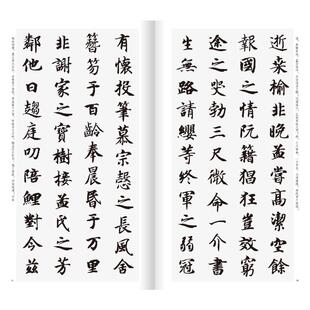 逝桒榆非晚孟嘗高潔空餘
報國之情阮籍猖狂豈效窮
途之哭勃三尺微命一介書
生無路請纓等終軍之弱冠
有懷投筆慕宗愨之長風舍
簪笏于百齡奉晨昏于萬里
非謝家之寶樹接孟氏之芳
鄰他日趨庭叨陪鯉對今茲